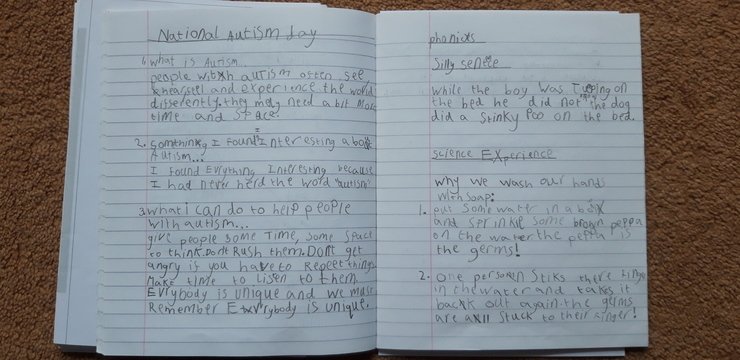 National Autism day
1. What is Autism...
people with autism often see,
hear, feel and experience the world
differently. they may need a bit more
time and space.
2. Somthing I found Interesting about
Autism...
I found Evrything Interesting because
I had never herd the word "autism"
3. what i can do to help people
with autism...
give people some Time, some space
to think. Dont Rush them. Dont get
angry if you have to Repeet things.
Make time to listen to them.
Evrybody is unique and we must
Remember Evrybody is unique.
phonicks
Silly sentece
While the boy was on
the bed he did not the dog
did a stinky Poo on the bed.
science Experience
why we wash our hands
with soap:
1. put some water in a
and sprinkle some brown peppa
on the water the peppa is
the germs!
2. One person stiks there finger
in the water and takes it
back out again. the germs
are all stuck to their finger!